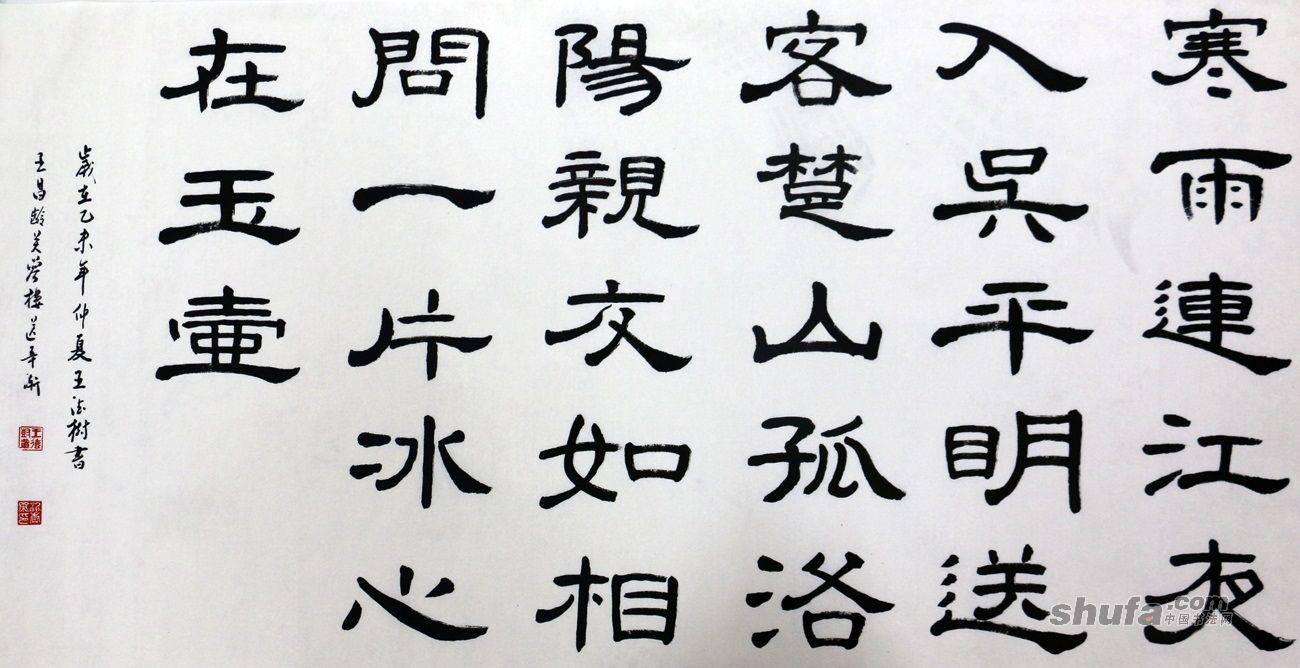 寒雨連江夜
入吳平明送
客楚山孤洛
陽親交如相
問一片冰心
在玉壺
歲在乙未年仲夏王法樹書
王昌齡芙蓉樓送辛漸
shufa.com
中国书法网